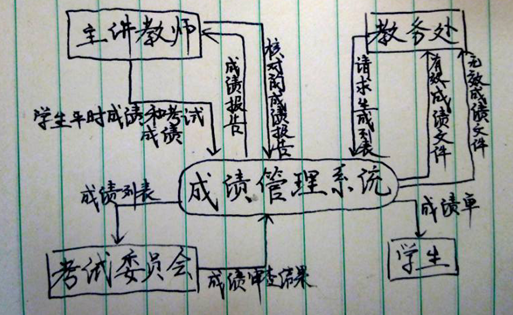 主讲教师
教务处
学生平时成绩和考试
成绩
成绩报告
核对前成绩报告
请求生成列表
有效成绩文件
无效成绩文件
成绩管理系统
成绩列表
成绩单
考试委员会
成绩审查结果
学生